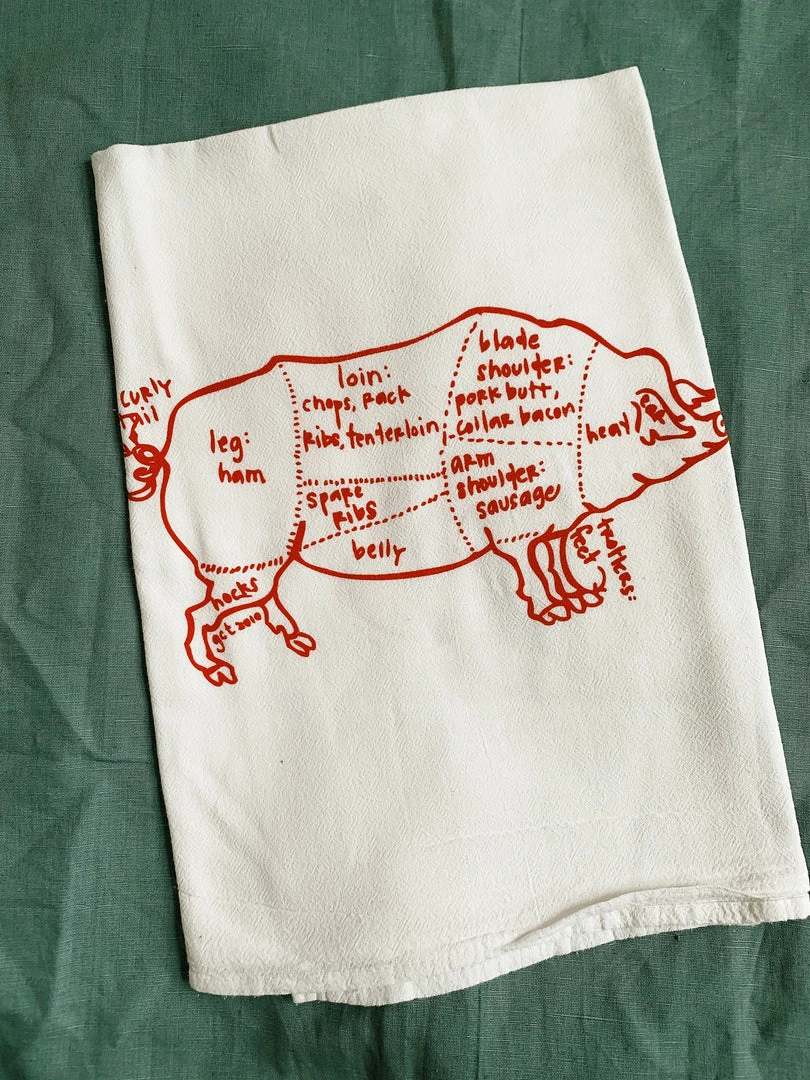 curly
tail
leg:
ham
loin:
chops, rack
ribs, tenterloin
spare
ribs
belly
blade
shoulder:
pork butt,
collar bacon
arm
shoulder:
sausage
head
hocks
gct2010
trotters:
feet